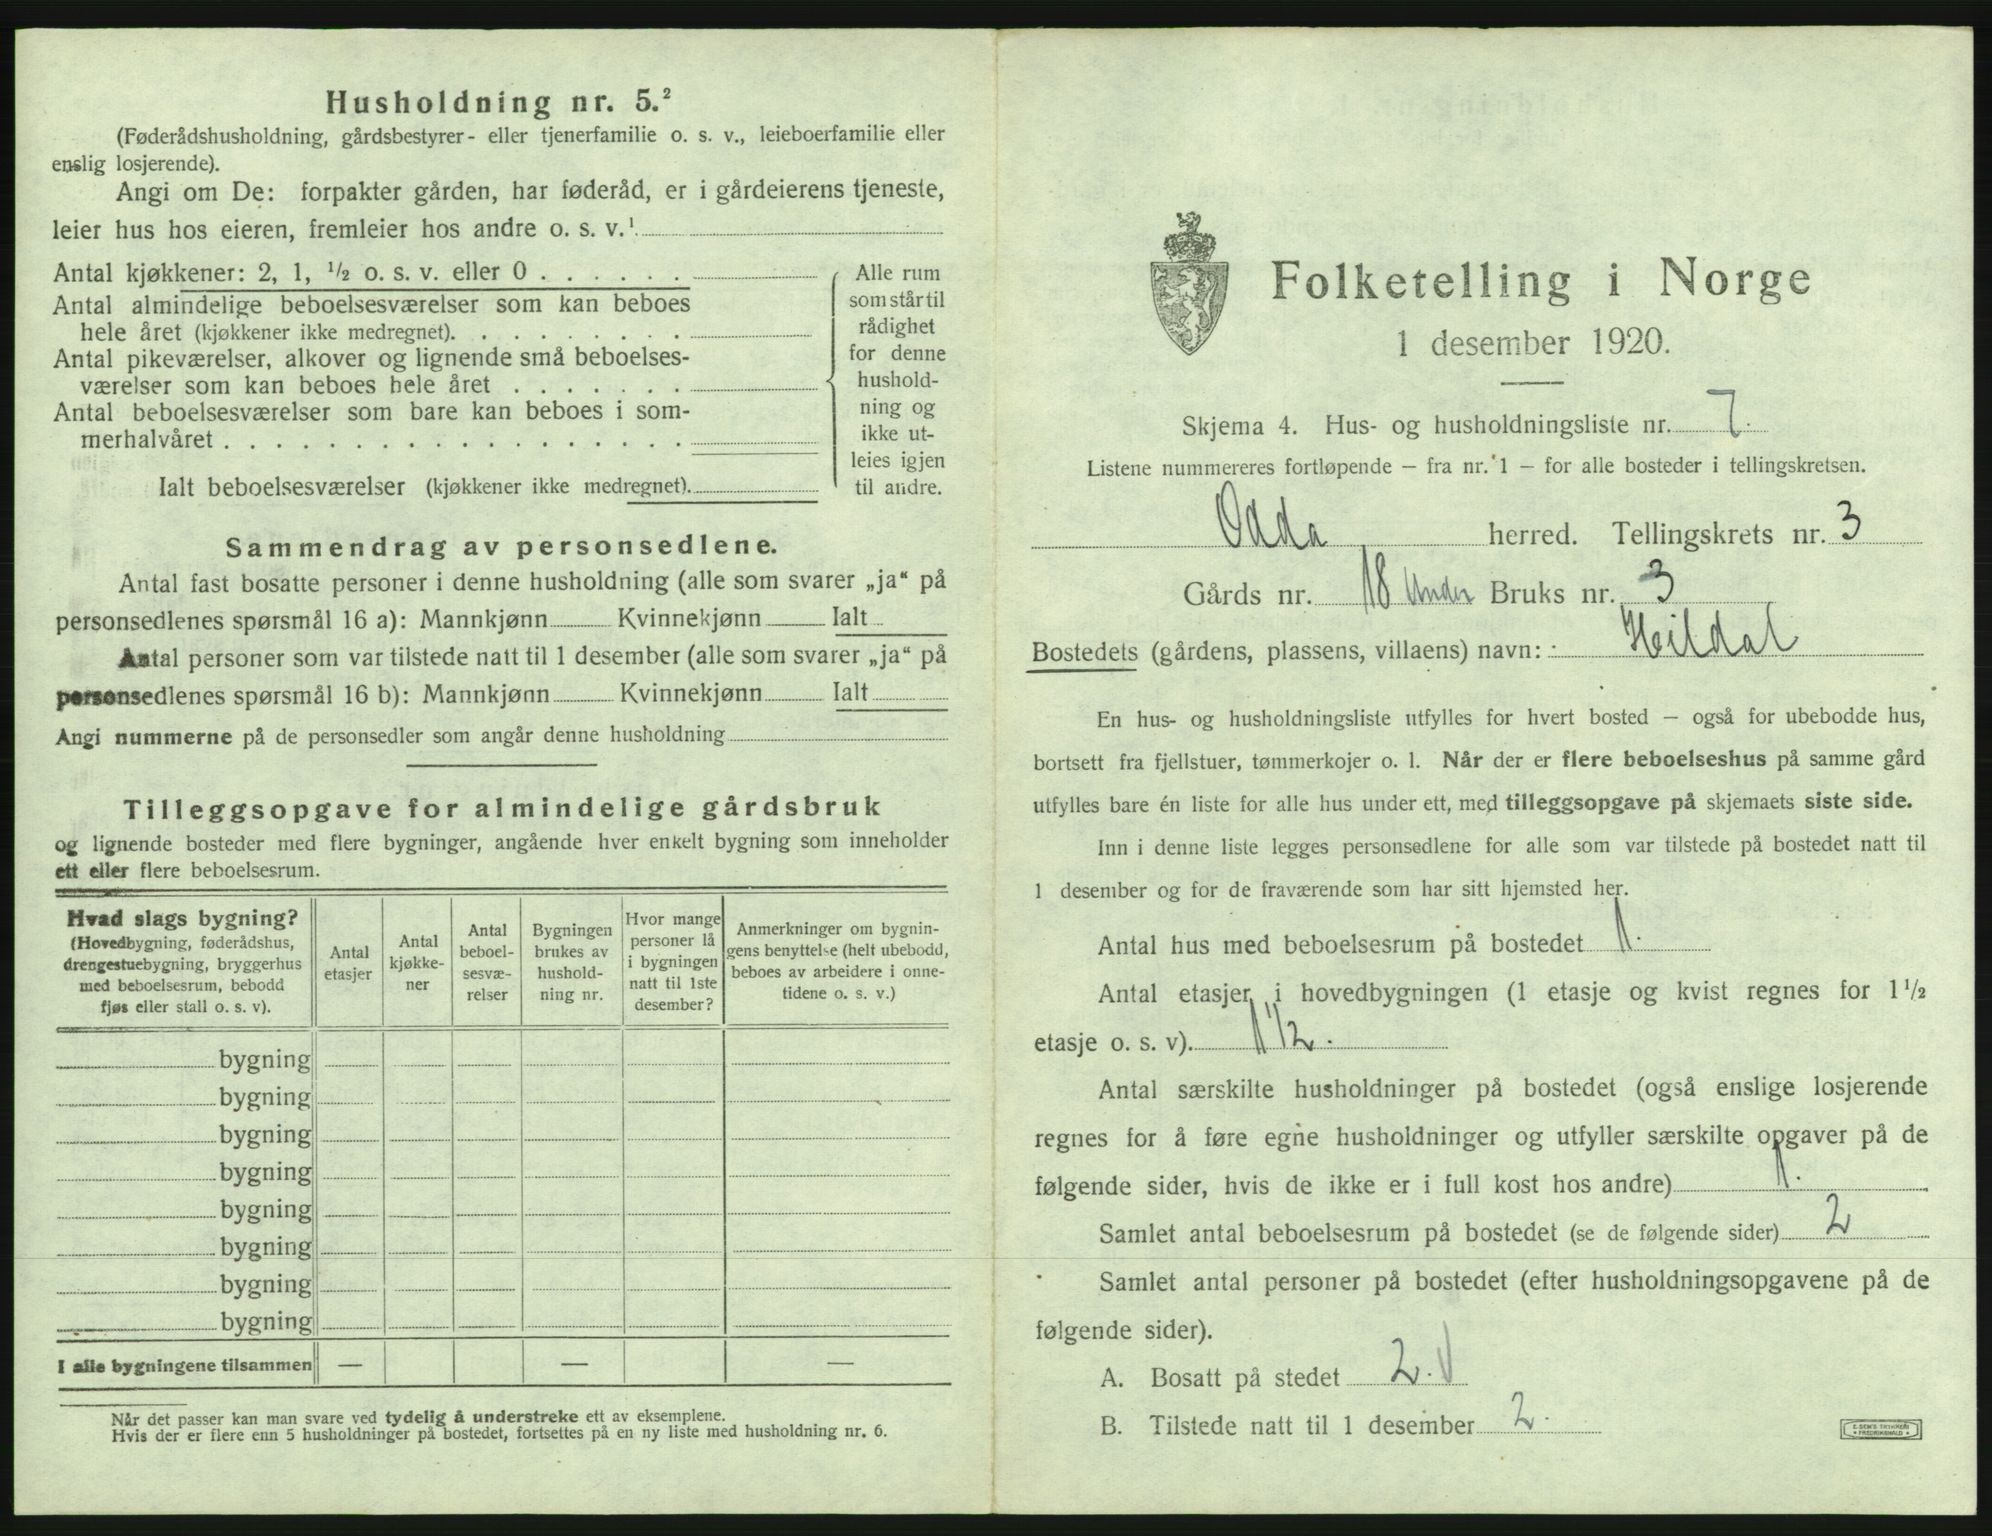 Husholdning nr. 5.²
(Føderådshusholdning, gårdsbestyrer- eller tjenerfamilie o. s. v., leieboerfamilie eller
enslig losjerende).
Angi om De: forpakter gården, har føderåd, er i gårdeierens tjeneste,
leier hus hos eieren, fremleier hos andre o. s. v.¹
Antal kjøkkener: 2, 1, ½ o. s. v. eller 0 . . . . . .
Antal almindelige beboelsesværelser som kan beboes
hele året (kjøkkener ikke medregnet). . . . . . . . .
Antal pikeværelser, alkover og lignende små beboelses-
værelser som kan beboes hele året . . . . . . .
Antal beboelsesværelser som bare kan beboes i som-
merhalvåret . . . . . . . . . . . . . . . . . .
Ialt beboelsesværelser (kjøkkener ikke medregnet).
Alle rum
som står til
rådighet
for denne
hushold-
ning og
ikke ut-
leies igjen
til andre.
Sammendrag av personsedlene.
Antal fast bosatte personer i denne husholdning (alle som svarer „ja“ på
personsedlenes spørsmål 16 a): Mannkjønn Kvinnekjønn Ialt
Antal personer som var tilstede natt til 1 desember (alle som svarer „ja“ på
personsedlenes spørsmål 16 b): Mannkjønn Kvinnekjønn Ialt
Angi nummerne på de personsedler som angår denne husholdning
Tilleggsopgave for almindelige gårdsbruk
og lignende bosteder med flere bygninger, angående hver enkelt bygning som inneholder
ett eller flere beboelsesrum.
Hvad slags bygning?
(Hovedbygning, føderådshus,
drengestuebygning, bryggerhus
med beboelsesrum, bebodd
fjøs eller stall o. s. v).
Antal
etasjer
Antal
kjøkke-
ner
Antal
beboel-
sesvæ-
relser
Bygningen
brukes av
hushold-
ning nr.
Hvor mange
personer lå
i bygningen
natt til 1ste
desember?
Anmerkninger om bygnin-
gens benyttelse (helt ubebodd,
beboes av arbeidere i onne-
tidene o. s. v.)
bygning
bygning
bygning
bygning
bygning
bygning
bygning
bygning
I alle bygningene tilsammen — — —
Når det passer kan man svare ved tydelig å understreke ett av eksemplene.
Hvis der er flere enn 5 husholdninger på bostedet, fortsettes på en ny liste med husholdning nr. 6.
Folketelling i Norge
1 desember 1920.
Skjema 4. Hus- og husholdningsliste nr. 7.
Listene nummereres fortløpende — fra nr. 1 — for alle bosteder i tellingskretsen.
Odda herred. Tellingskrets nr. 3
Gårds nr. 18 under Bruks nr. 3
Bostedets (gårdens, plassens, villaens) navn: Hildal
En hus- og husholdningsliste utfylles for hvert bosted — også for ubebodde hus,
bortsett fra fjellstuer, tømmerkojer o. l. Når der er flere beboelseshus på samme gård
utfylles bare én liste for alle hus under ett, med tilleggsopgave på skjemaets siste side.
Inn i denne liste legges personsedlene for alle som var tilstede på bostedet natt til
1 desember og for de fraværende som har sitt hjemsted her.
Antal hus med beboelsesrum på bostedet 1.
Antal etasjer i hovedbygningen (1 etasje og kvist regnes for 1½
etasje o. s. v). 1½.
Antal særskilte husholdninger på bostedet (også enslige losjerende
regnes for å føre egne husholdninger og utfyller særskilte opgaver på de
følgende sider, hvis de ikke er i full kost hos andre) 1.
Samlet antal beboelsesrum på bostedet (se de følgende sider) 2
Samlet antal personer på bostedet (efter husholdningsopgavene på de
følgende sider).
A. Bosatt på stedet 2.
B. Tilstede natt til 1 desember 2.